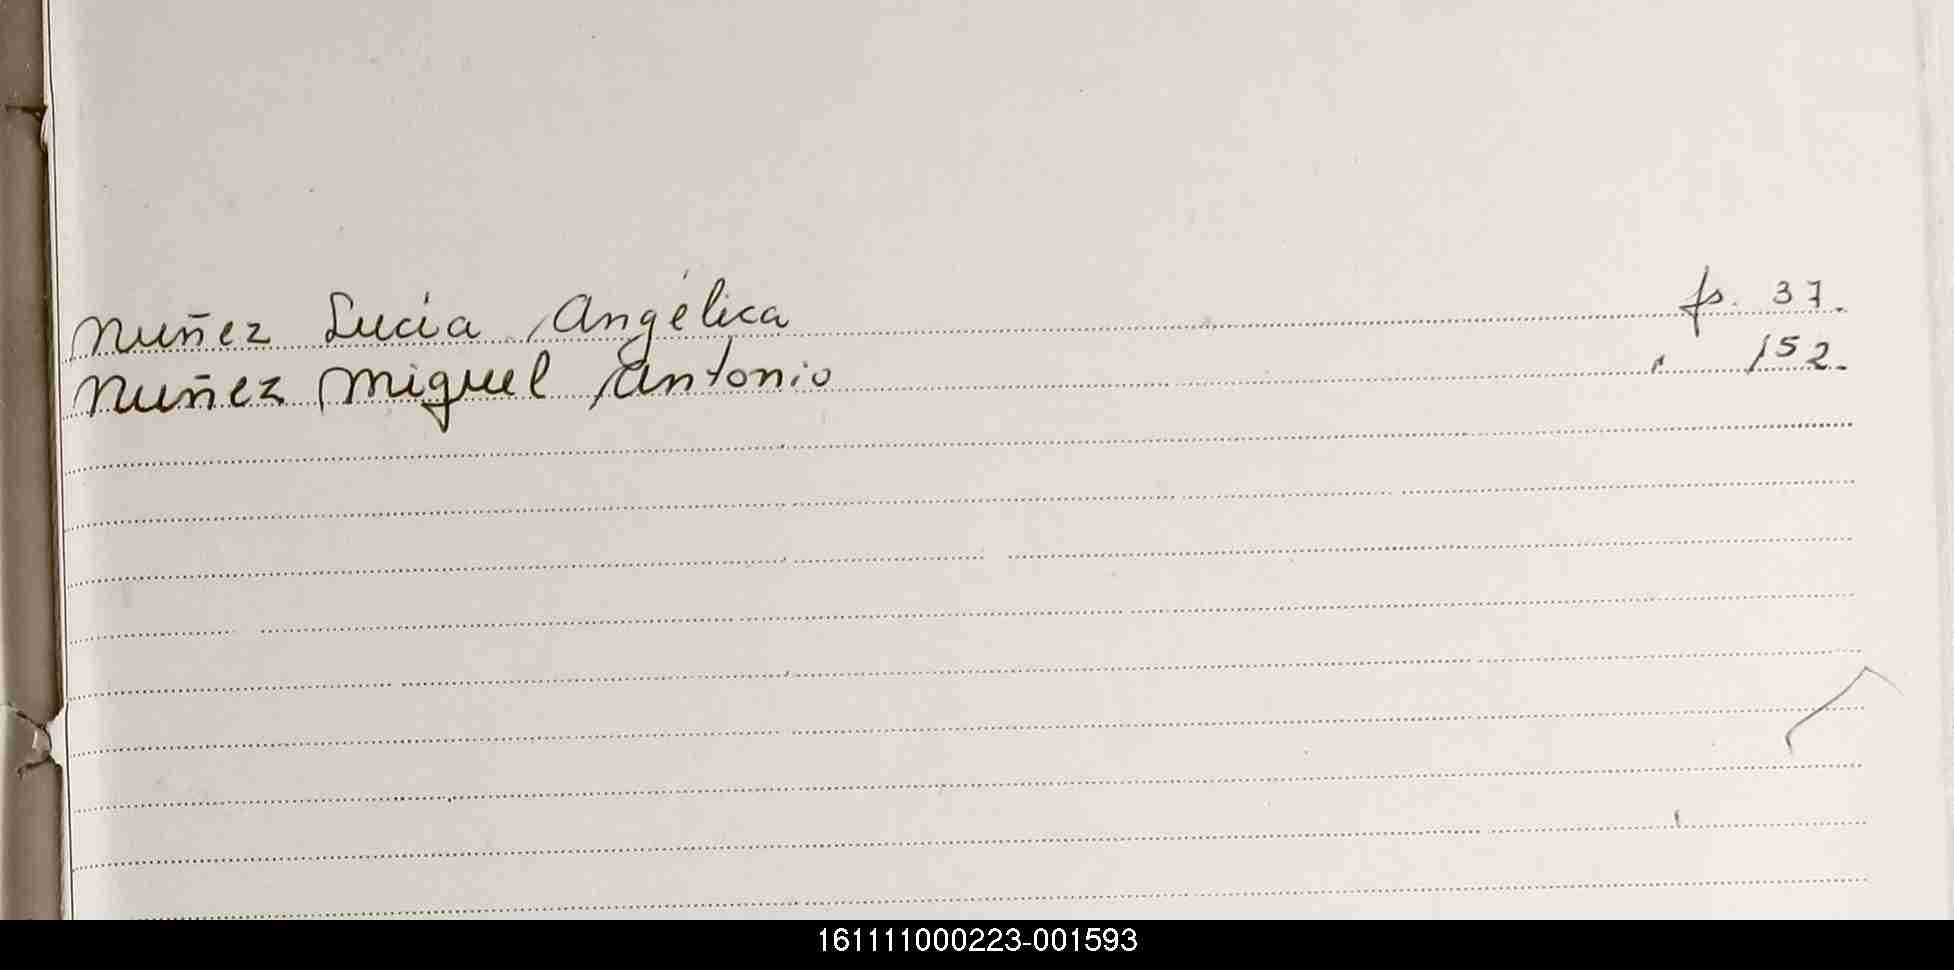 Nuñez Lucia Angélica fs. 37.
Nuñez Miguel Antonio " 152.
161111000223-001593